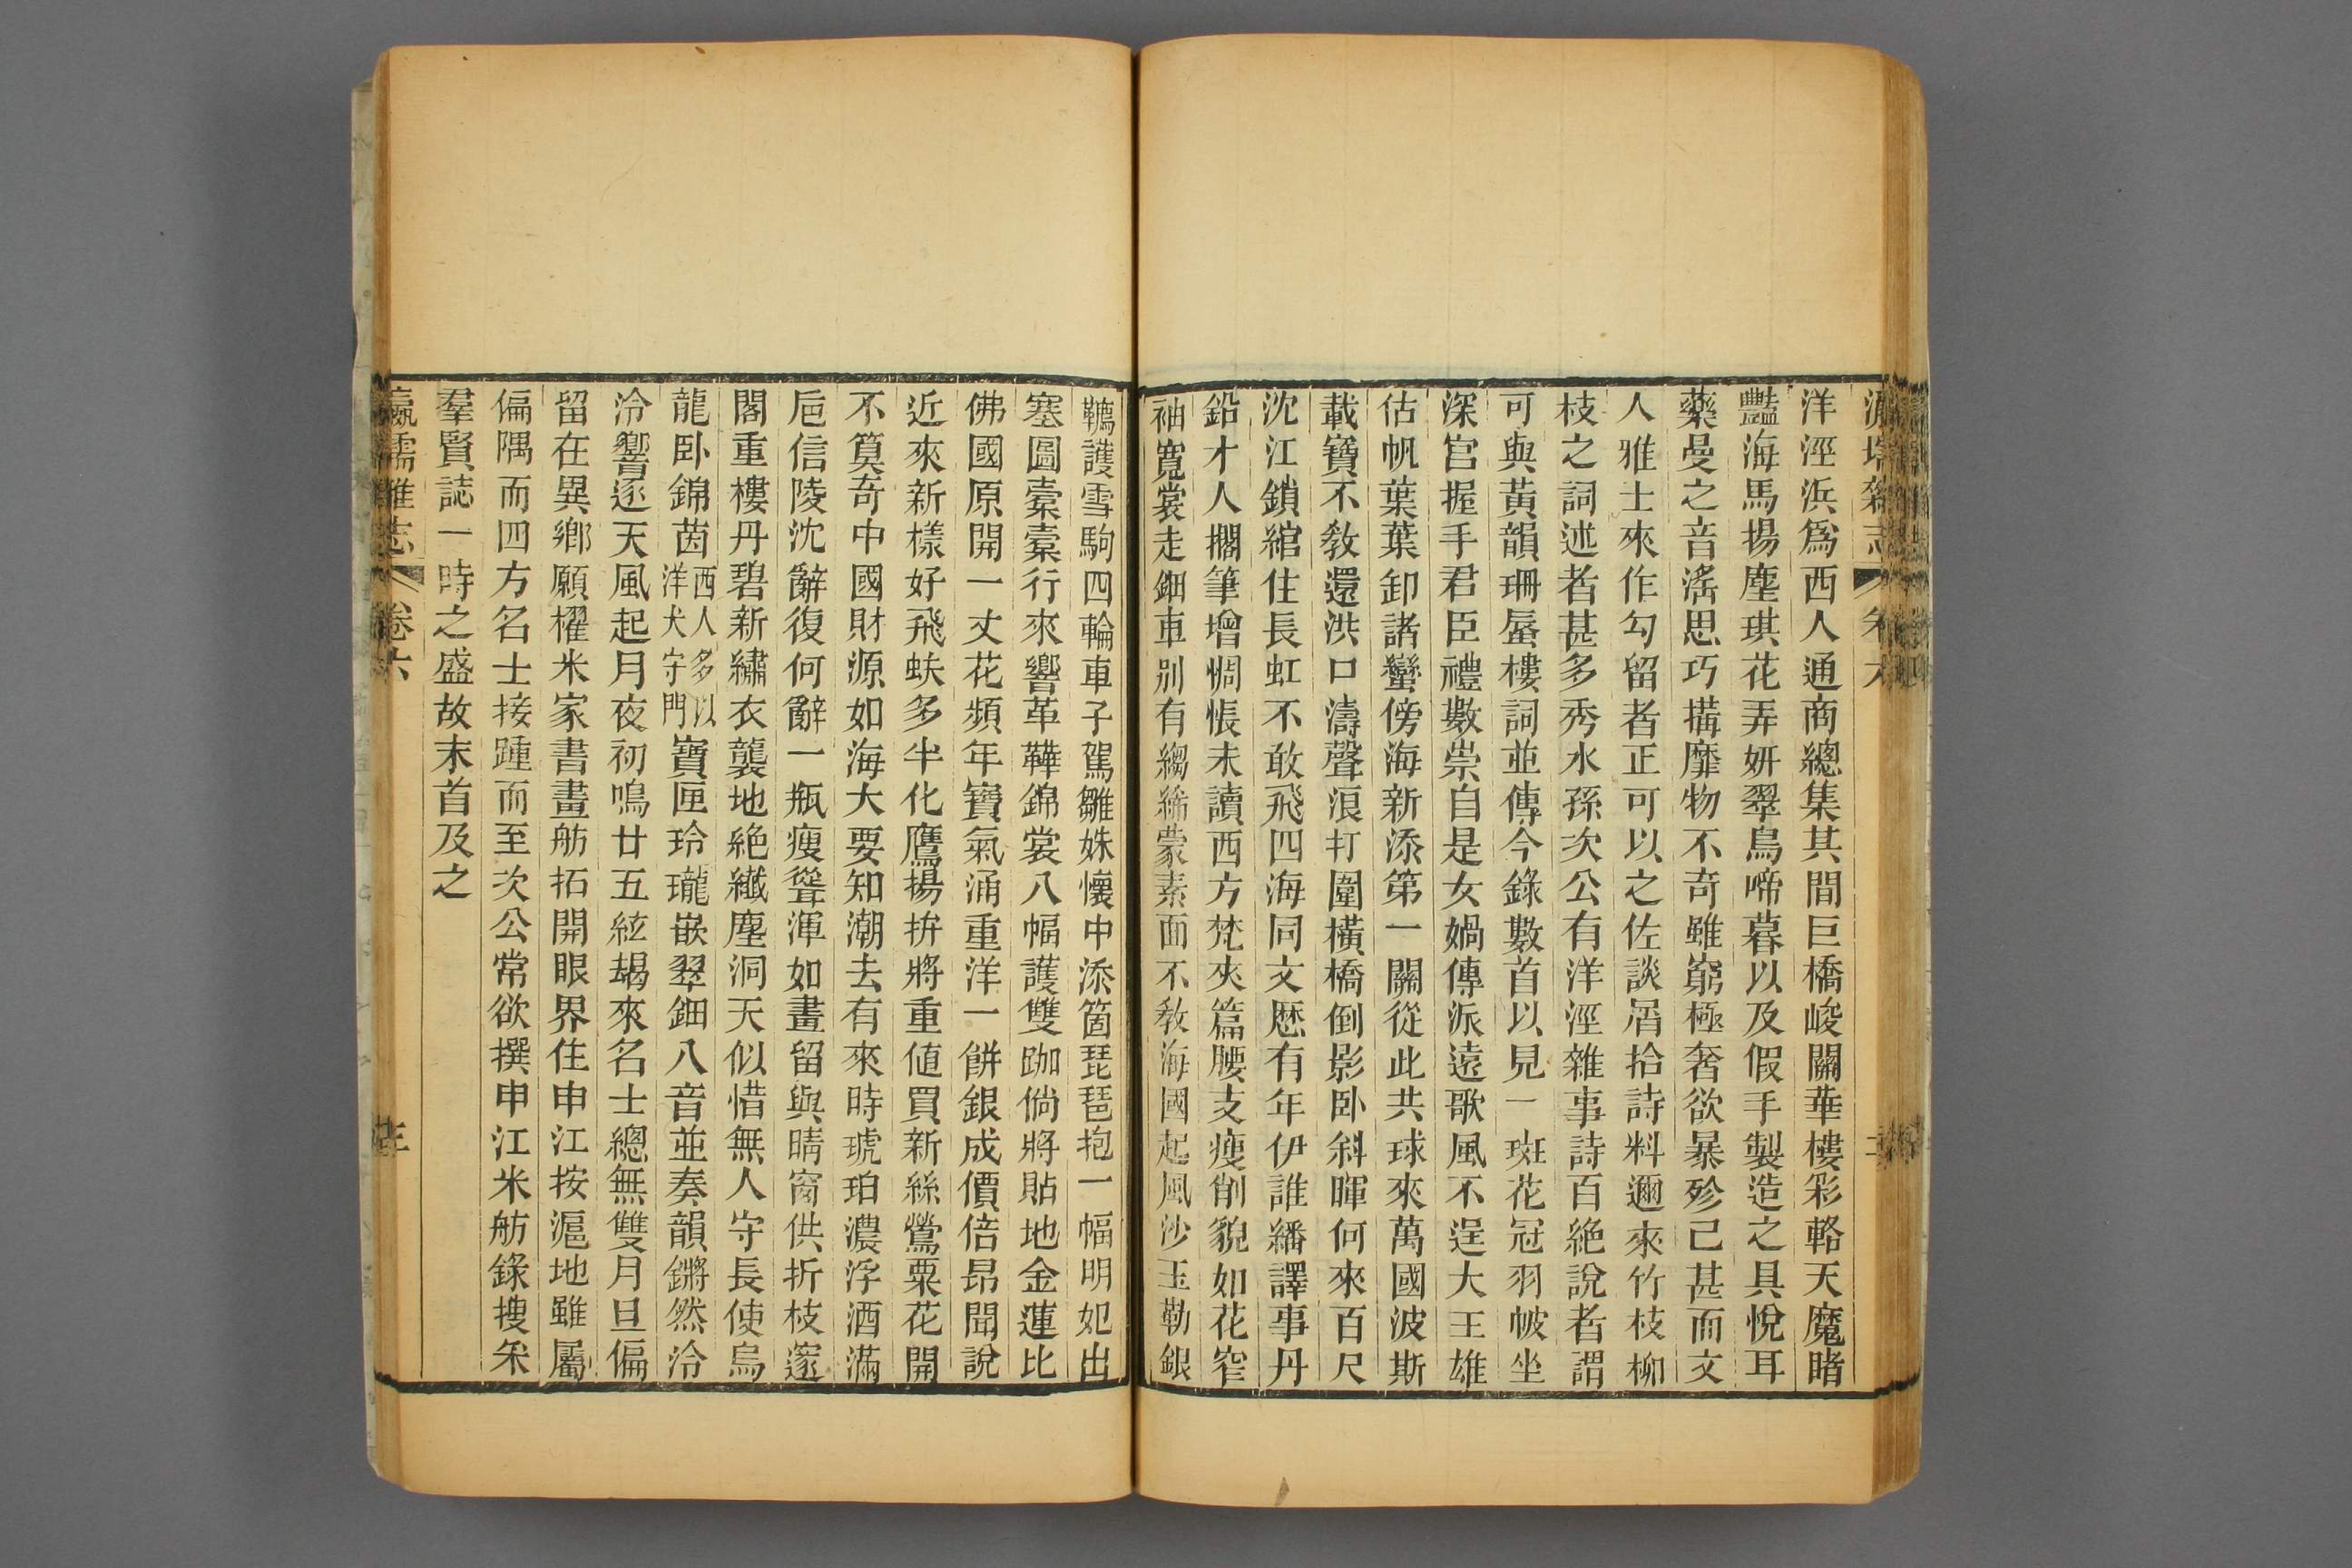 洋涇浜爲西人通商總集其間巨橋峻關華樓彩輅天魔睹
豔海馬揚塵琪花弄妍翠鳥啼暮以及假手製造之具悅耳
藥曼之音淫思巧搆靡物不奇雖窮極奢欲暴殄已甚而文
人雅士來作勾留者正可以之佐談屑拾詩料邇來竹枝柳
枝之詞述者甚多秀水孫次公有洋涇雜事詩百絶說者謂
可與黃韻珊蜃樓詞並傳今錄數首以見一斑花冠羽帔坐
深宮握手君臣禮數崇自是女媧傳派遠歌風不逞大王雄
估帆葉葉卸諸蠻傍海新添第一關從此共球來萬國波斯
載寶不敎還洪口濤聲浪打圍橫橋倒影卧斜暉何來百尺
沈江鎖綰住長虹不敢飛四海同文歷有年伊誰繙譯事丹
鉛才人擱筆增惆悵未讀西方梵夾篇腰支瘦削貌如花窄
袖寬裳走鈿車别有縐絺蒙素面不敎海國起風沙玉勒銀
韉護雪駒四輪車子駕雛姝懷中添箇琵琶抱一幅明妃出
塞圖橐橐行來響革鞾錦裳八幅護雙跏倘將貼地金蓮比
佛國原開一丈花頻年寶氣涌重洋一餅銀成價倍昂聞說
近來新樣好飛蚨多半化鷹揚拚將重値買新絲鶯粟花開
不筭奇中國財源如海大要知潮去有來時琥珀濃浮酒滿
卮信陵沈辭復何辭一瓶瘦聳渾如畫留與晴窗供折枝邃
閣重樓丹碧新繡衣襲地絶纖塵洞天似惜無人守長使烏
龍卧錦茵西人多以洋犬守門寶匣玲瓏嵌翠鈿八音並奏韻鏘然泠
泠響逐天風起月夜初鳴廿五絃朅來名士總無雙月旦偏
留在異鄉願櫂米家書畫舫拓開眼界住申江按滬地雖屬
偏隅而四方名士接踵而至次公常欲撰申江米舫錄搜采
羣賢誌一時之盛故末首及之
瀛壖雜志 卷六